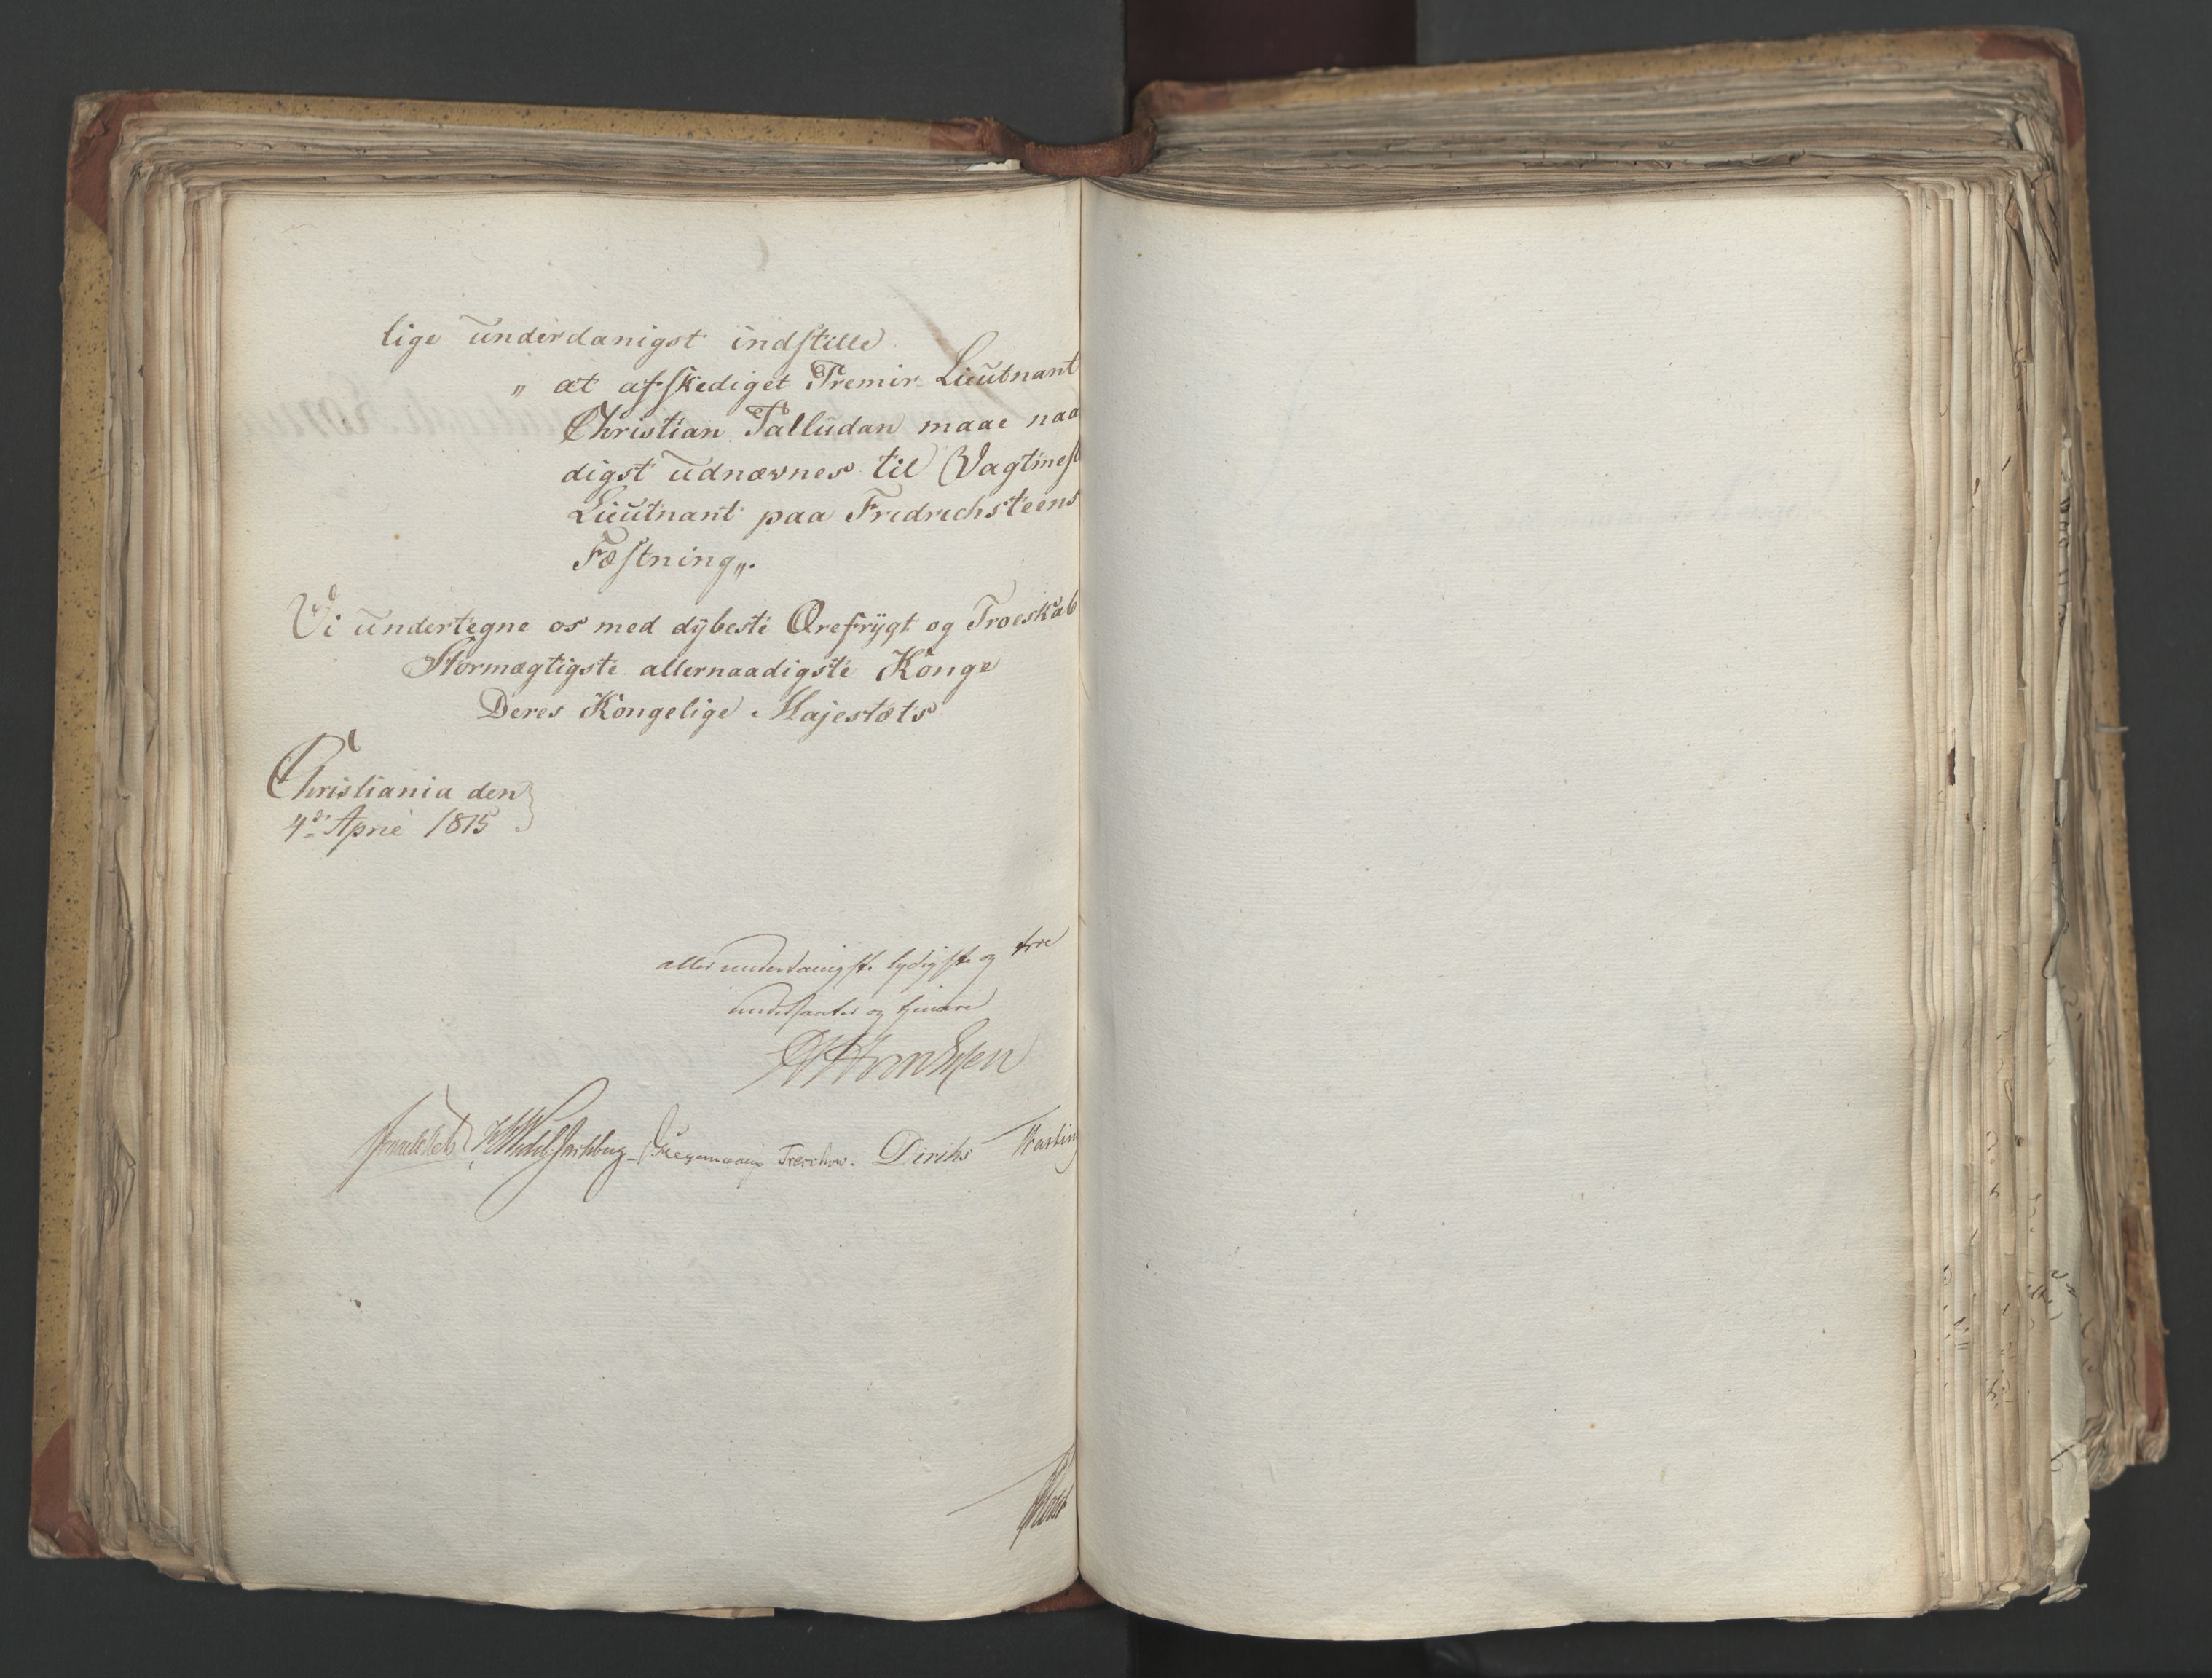 lige underdanigst indstille
„ at afskediget Premier Lieutnant
Christian Palludan maae naa
digst udnævnes til Vagtmest
Lieutnant paa Fredrichsteens
Fæstning„.
Vi undertegne os med dybeste Ærefrygt og Troeskab
Stormægtigste allernaadigste Konge
Deres Kongelige Majestæts
Christiania den
4de April 1815
allerunderdanigste lydigste og troe
undersaatter og tjenere
Krieger Treschow. Diriks